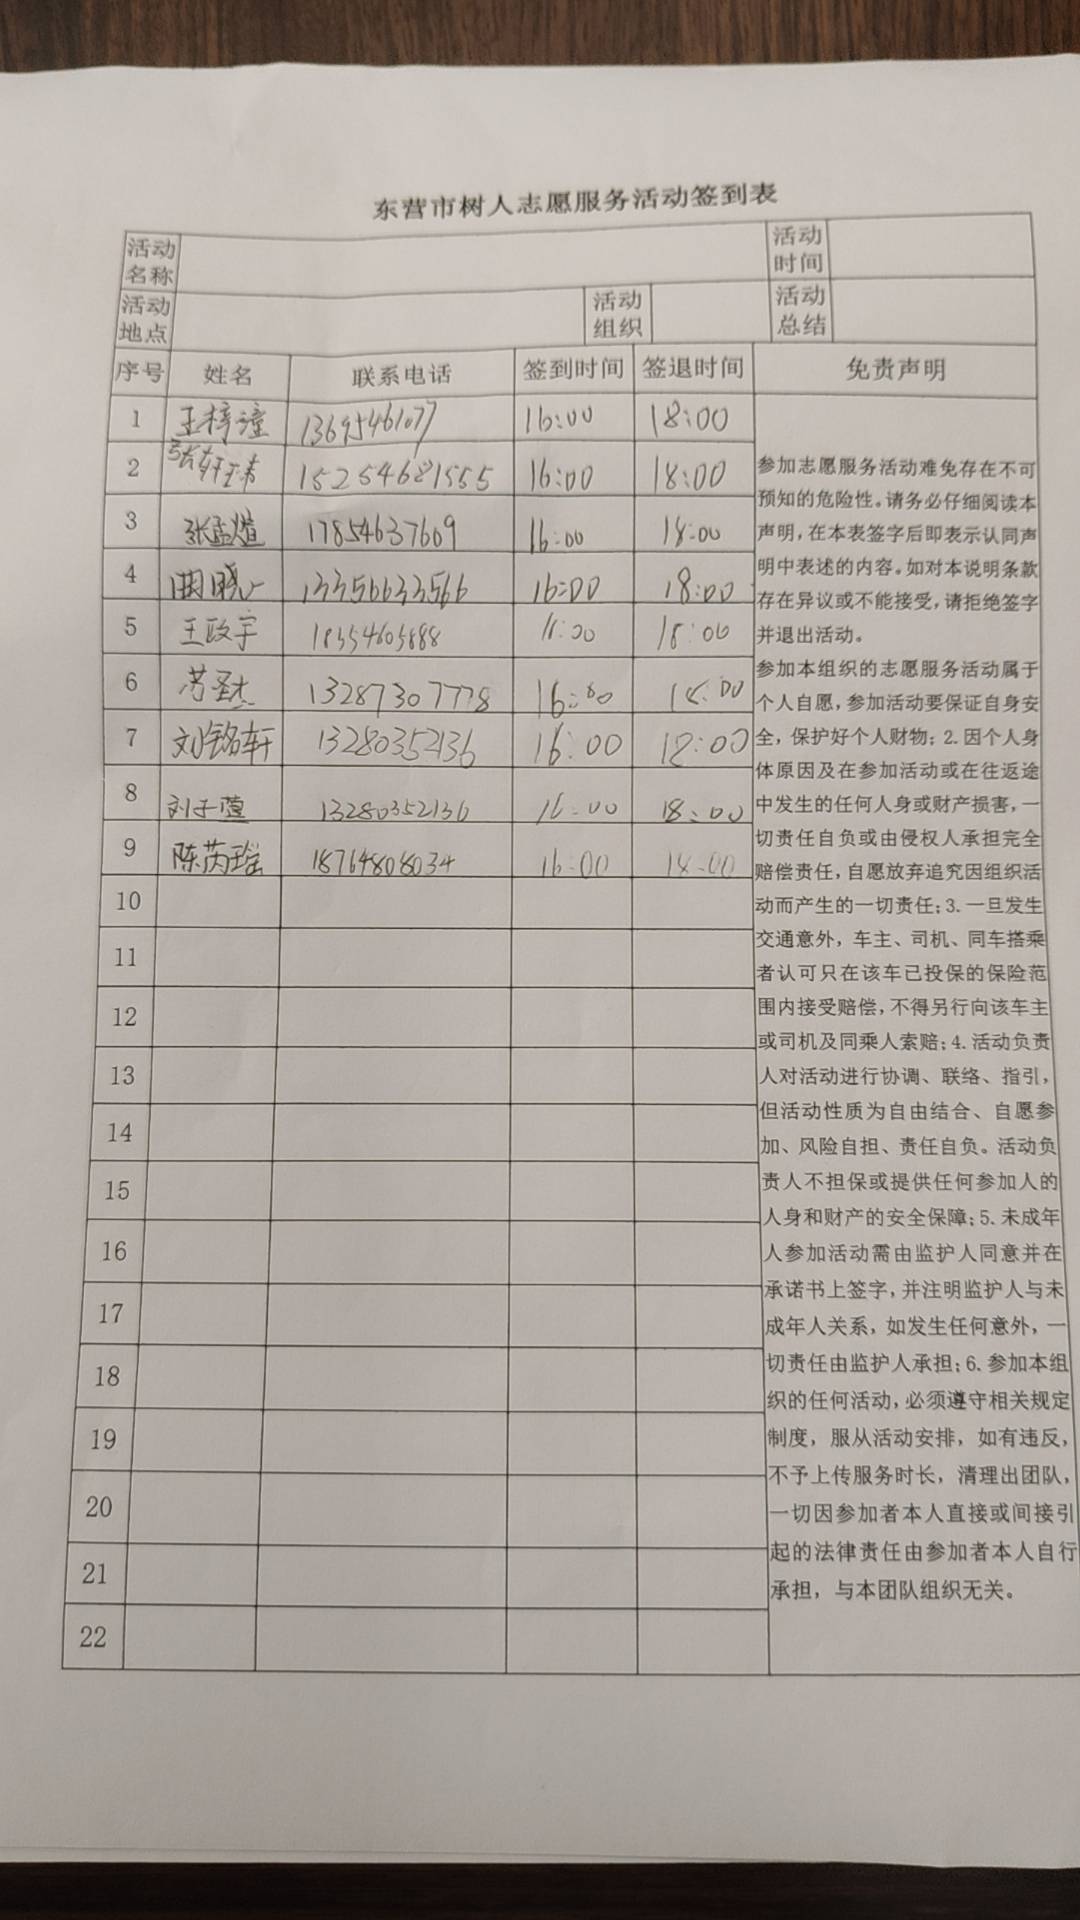 东营市树人志愿服务活动签到表
活动名称 活动时间
活动地点 活动组织 活动总结
序号 姓名 联系电话 签到时间 签退时间 免责声明
1 王梓潼 13695461077 16:00 18:00
2 15254621555 16:00 18:00
3 张孟煊 17854637609 16:00 18:00
4 13356633566 16:00 18:00
5 王政宇 18354605888 18:00
6 13287307778 16:00 18:00
7 刘铭轩 13280352136 16:00 18:00
8 刘子萱 13280352136 16:00 18:00
9 陈芮瑶 18764808034 16:00 18:00
10
11
12
13
14
15
16
17
18
19
20
21
22
参加志愿服务活动难免存在不可
预知的危险性。请务必仔细阅读本
声明,在本表签字后即表示认同声
明中表述的内容。如对本说明条款
存在异议或不能接受,请拒绝签字
并退出活动。
参加本组织的志愿服务活动属于
个人自愿,参加活动要保证自身安
全,保护好个人财物;2.因个人身
体原因及在参加活动或在往返途
中发生的任何人身或财产损害,一
切责任自负或由侵权人承担完全
赔偿责任,自愿放弃追究因组织活
动而产生的一切责任;3.一旦发生
交通意外,车主、司机、同车搭乘
者认可只在该车已投保的保险范
围内接受赔偿,不得另行向该车主
或司机及同乘人索赔;4.活动负责
人对活动进行协调、联络、指引,
但活动性质为自由结合、自愿参
加、风险自担、责任自负。活动负
责人不担保或提供任何参加人的
人身和财产的安全保障;5.未成年
人参加活动需由监护人同意并在
承诺书上签字,并注明监护人与未
成年人关系,如发生任何意外,一
切责任由监护人承担;6.参加本组
织的任何活动,必须遵守相关规定
制度,服从活动安排,如有违反,
不予上传服务时长,清理出团队,
一切因参加者本人直接或间接引
起的法律责任由参加者本人自行
承担,与本团队组织无关。